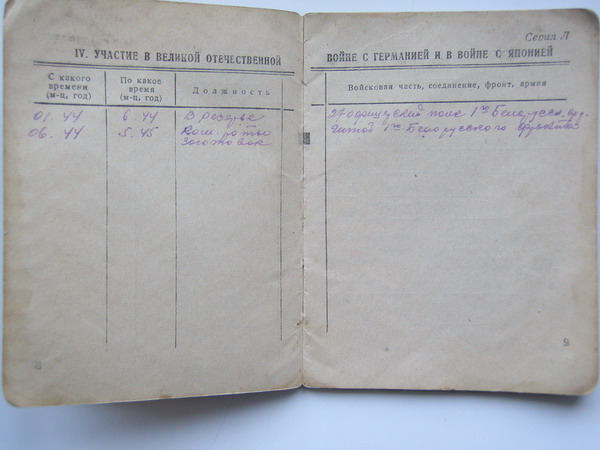 Серия Л
IV. УЧАСТИЕ В ВЕЛИКОЙ ОТЕЧЕСТВЕННОЙ
ВОЙНЕ С ГЕРМАНИЕЙ И В ВОЙНЕ С ЯПОНИЕЙ
С какого времени (м-ц, год)
По какое время (м-ц, год)
Должность
Войсковая часть, соединение, фронт, армия
01.44 6.44 В резерве 27 офицерский полк 1го Белорусск.
06.44 5.45 Ком. роты 1го Белорусского фронта
заготовок
8
9